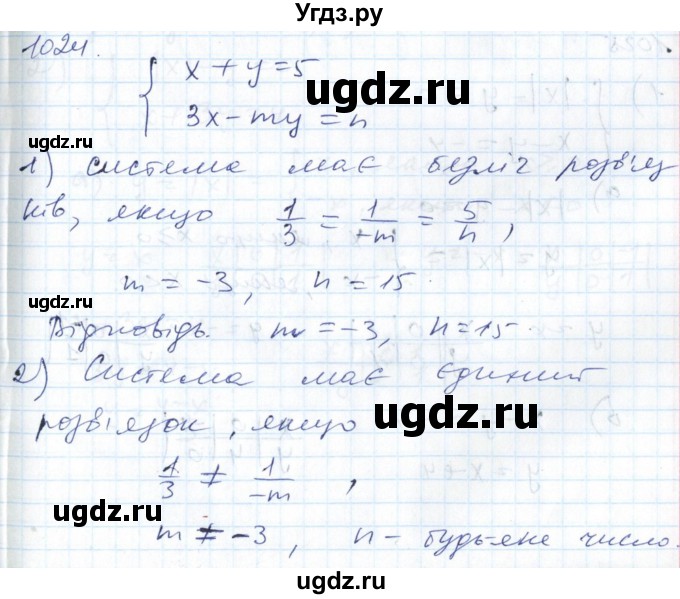 Угдз.ру
1024.
{ x + y = 5
ugdz.ru
3x - my = n
ugdz.ru
1) система має безліч розв'яз
ків, якщо 1/3 = 1/-m = 5/n,
m = -3, n = 15.
ugdz.ru
Відповідь. m = -3, n = 15.
2) Система має єдиний
розв'язок, якщо
ugdz.ru
1/3 ≠ 1/-m ,
ugdz.ru
m ≠ -3, n - будь-яке число.
ugdz.ru
ugdz.ru